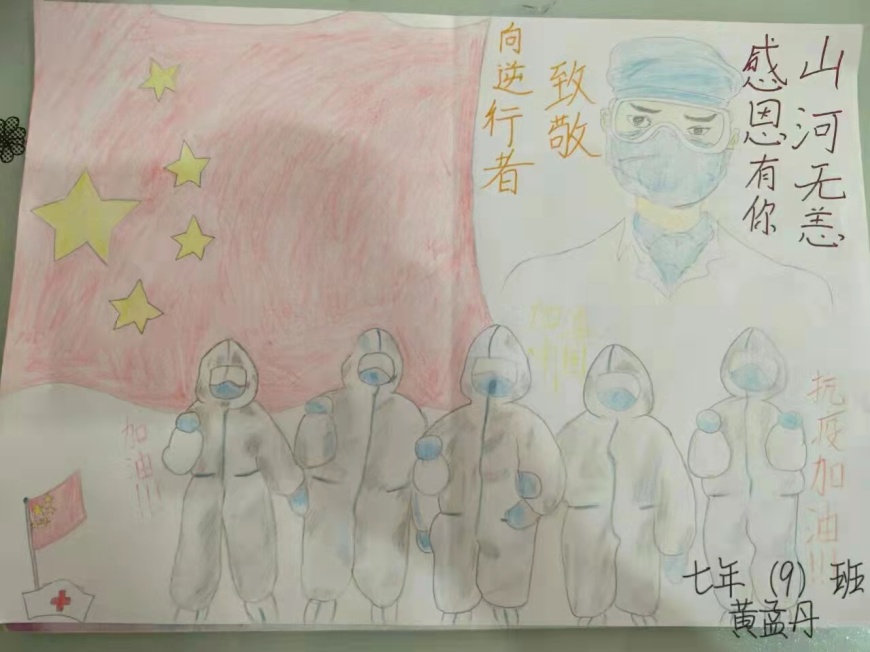 向逆行者
致敬
山河无恙
感恩有你
加油
中国!
加油!!!
抗疫加油!!!
七年(9)班
黄孟丹